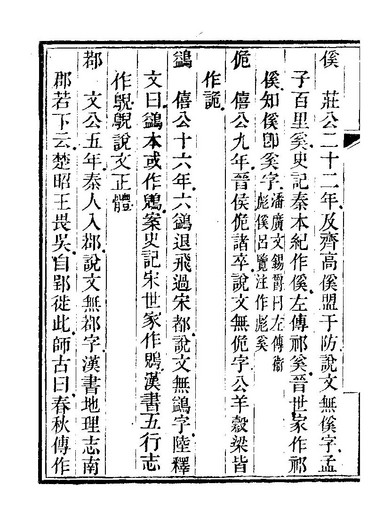 傒　莊公二十二年及齊高傒盟于防說文無傒字孟
子百里奚史記秦本紀作傒左傳祁奚晉世家作祁
傒知傒卽奚字潘廣文錫爵曰左傳衞
彪傒呂覽注作彪奚
佹　僖公九年晉侯佹諸卒說文無佹字公羊穀梁皆
作詭
鷁　僖公十六年六鷁退飛過宋都說文無鷁字陸釋
文曰鷁本或作鶂案史記宋世家作鶂漢書五行志
作鶃鶃說文正體
鄀　文公五年秦人入鄀說文無鄀字漢書地理志南
郡若下云楚昭王畏吳自郢徙此師古曰春秋傳作